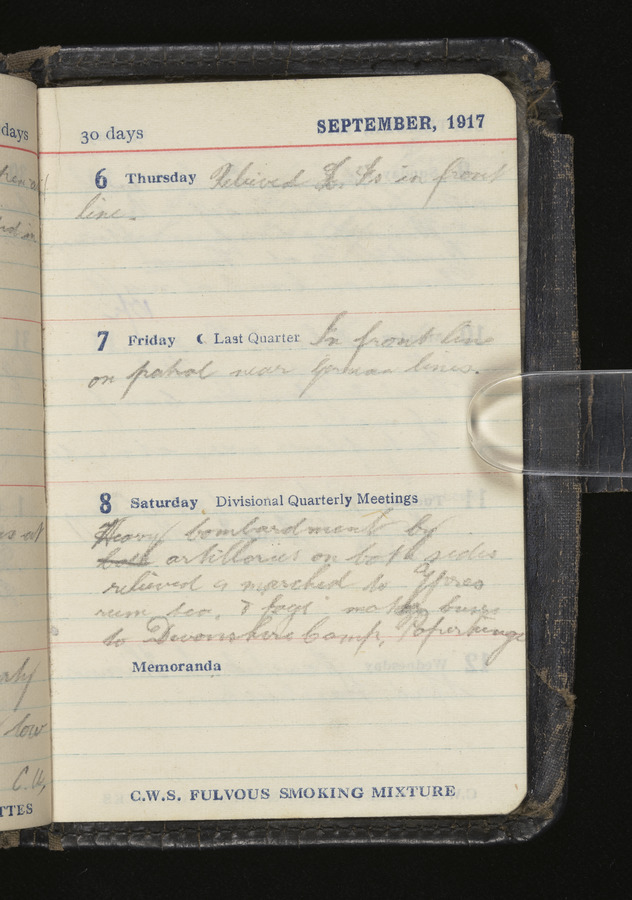 days
30 days
SEPTEMBER, 1917
6 Thursday Relieved L. Fs in front
line.
7 Friday Last Quarter In front line
on patrol near German lines.
8 Saturday Divisional Quarterly Meetings
Heavy bombardment by
both artilleries on both sides
relieved & marched to Ypres
rum tea, & fags motor buses
to Devonshire Camp, Poperhinge
Memoranda
low
C.W.
TTES
C.W.S. FULVOUS SMOKING MIXTURE